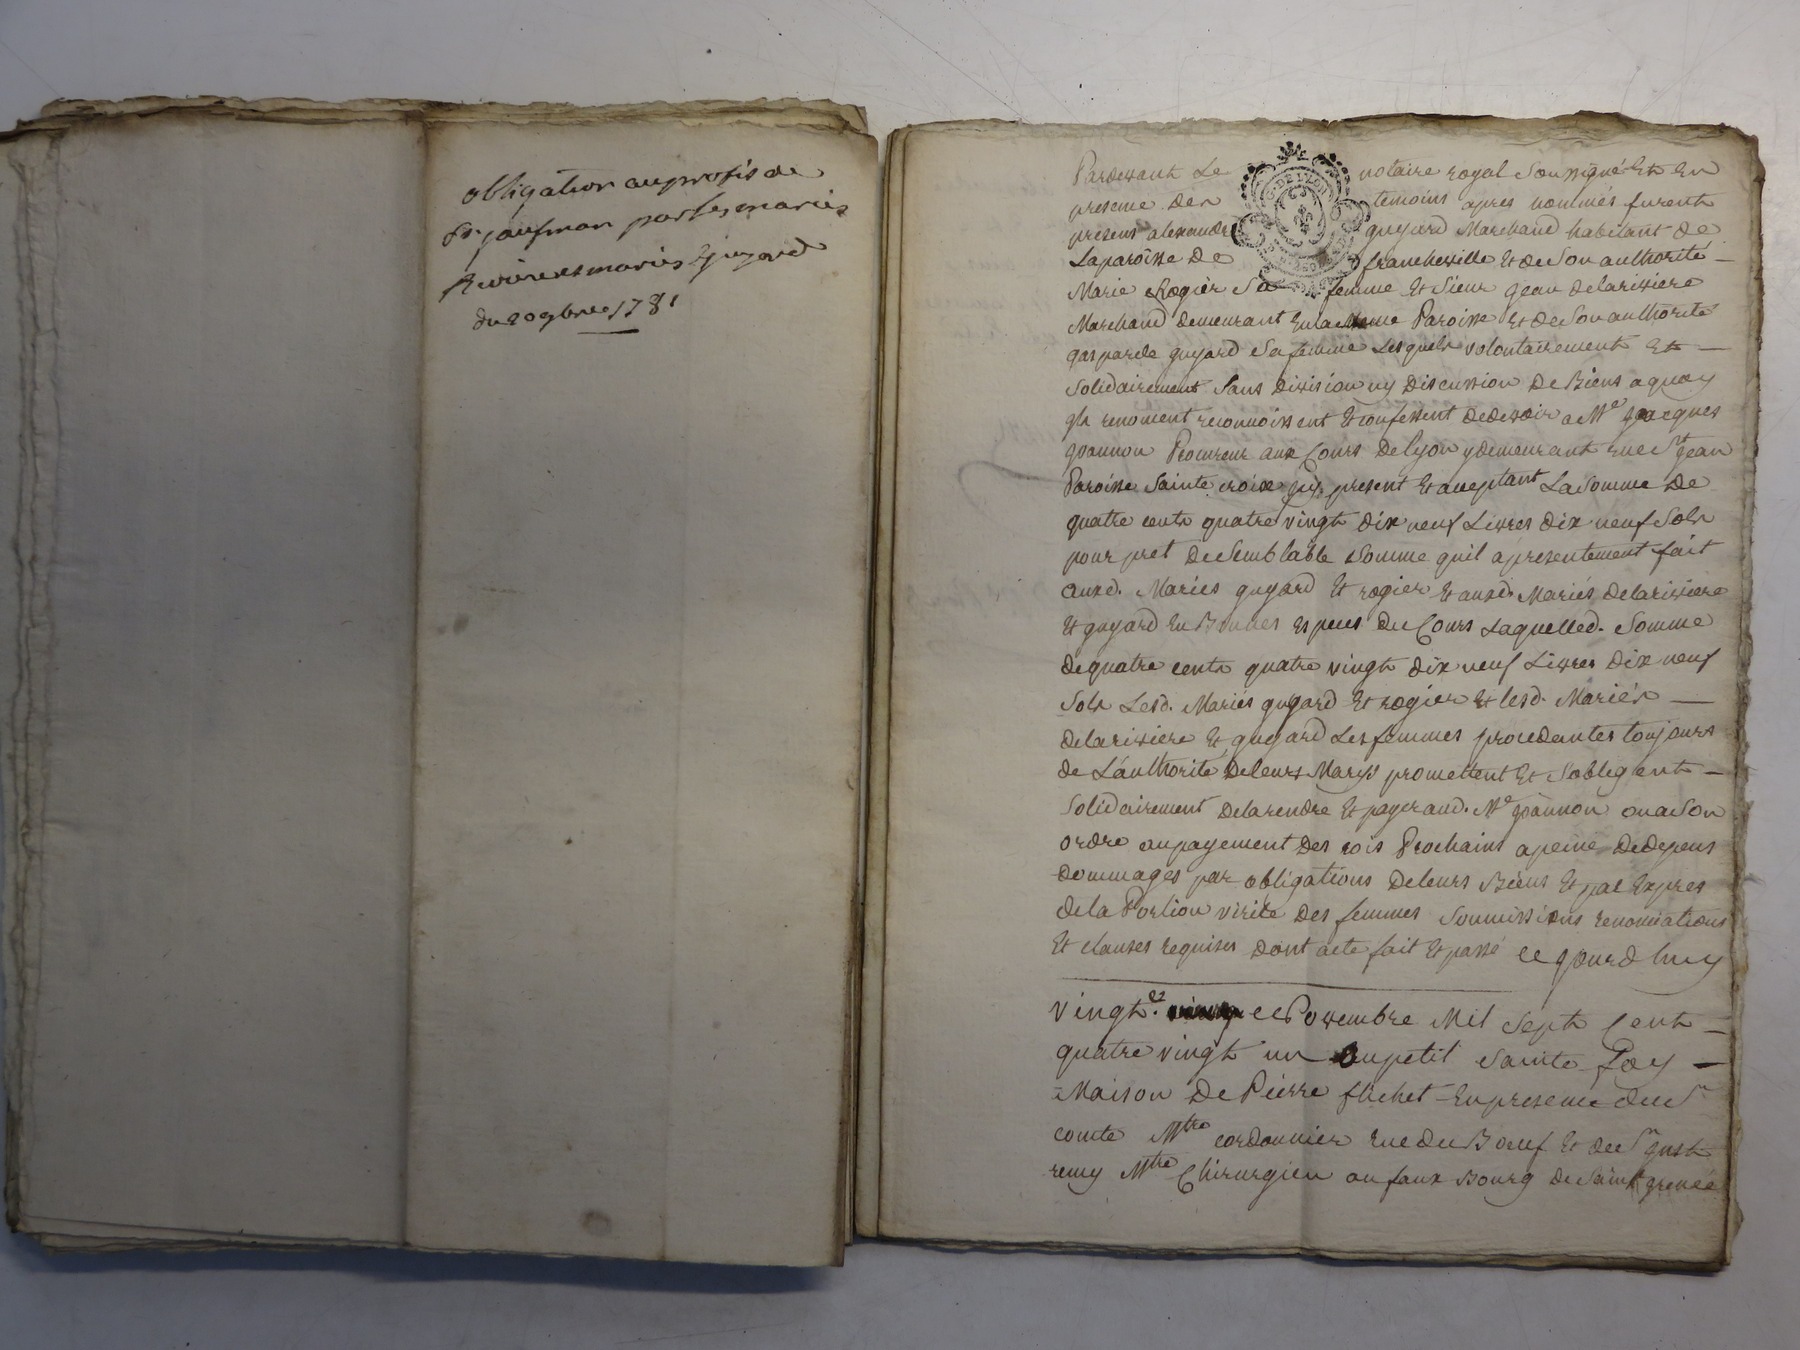 obligation au proffis de
Sr. jaufman par les mariés
Riviere et mariés Gujard
du 20 9bre 1781
Pardevant Le notaire royal Soussigné Et En
presence des temoins apres nommés furent
presens alexandre guyard Marchand habitant de
La paroisse De francheville Et de Son authorité
Marie Rogier Sa femme Et Sieur Jean delarissiere
Marchand demeurant En la Meme Paroisse Et de Son authorité
gasparde guyard Sa femme Lesquels volontairement Et
Solidairement Sans Division ny Discussion De Biens a quoy
Ils renoncent reconnoissent Et confessent de devoir a Me Jacques
Joannon Procureur aux Cours De Lyon y demeurant rue St Jean
Paroisse Sainte croix icy present Et acceptant La Somme De
quatre cents quatre vingt dix neuf Livres dix neuf Sols
pour pret De Semblable Somme quil a presentement fait
auxd. Mariés guyard Et rogier Et auxd. Mariés delarissiere
Et guyard En Bonnes Especes du Cours Laquelled. Somme
de quatre cents quatre vingt dix neuf Livres dix neuf
Sols Lesd. Mariés guyard Et rogier Et lesd. Mariés
delarissiere Et guyard Les femmes procedantes toujours
de L'authorité De leurs Marys promettent Et Sobligent
Solidairement De la rendre Et payer aud. Me Joannon ou a Son
ordre au payement Des rois Prochains a peine De depens
dommages par obligations De leurs Biens Et par Expres
de la Portion virile Des femmes Soumissions renonciations
Et clauses requises Dont acte fait Et passé ce Jourdhuy
vingt. Novembre Mil Sept Cent
quatre vingt un Au petit Sainte Foy
Maison De Pierre flichet En presence du Sr
comte Mtre cordonnier rue du Bœuf Et du Sr Just
remy Mtre Chirurgien au faux Bourg de Saint Irenée